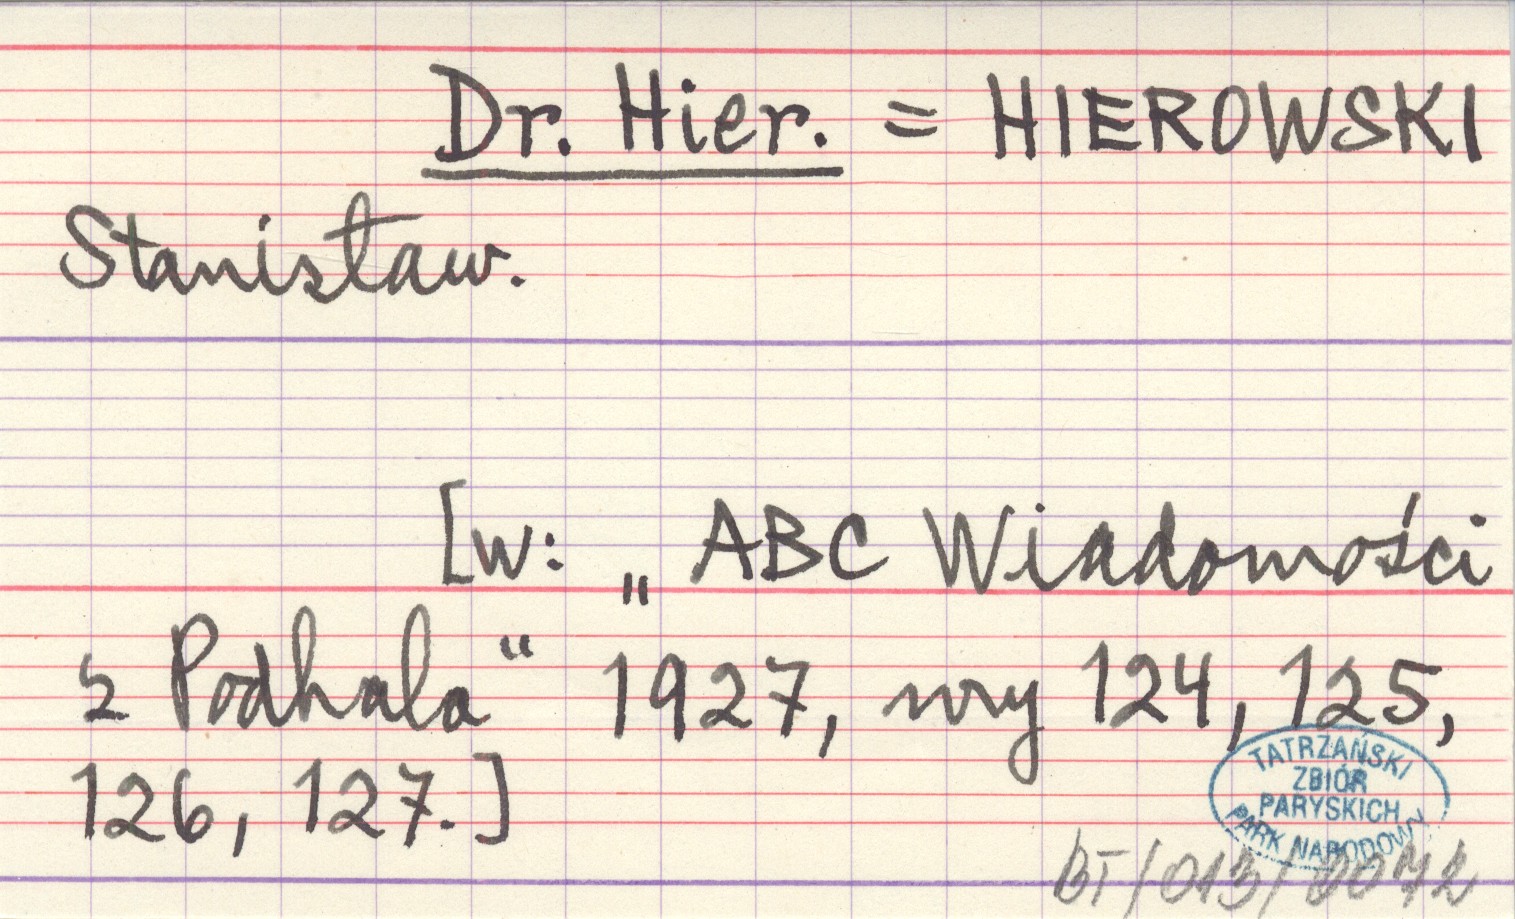 Dr. Hier. = HIEROWSKI
Stanisław.
[w: „ABC Wiadomości
z Podhala“ 1927, nry 124, 125,
126, 127.]
TATRZAŃSKI
ZBIÓR
PARYSKICH
PARK NARODOWY
BT/013/0072